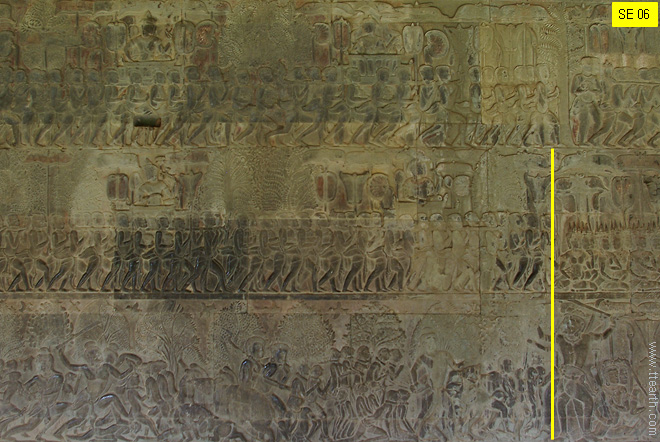 SE 06
www.ttearth.com